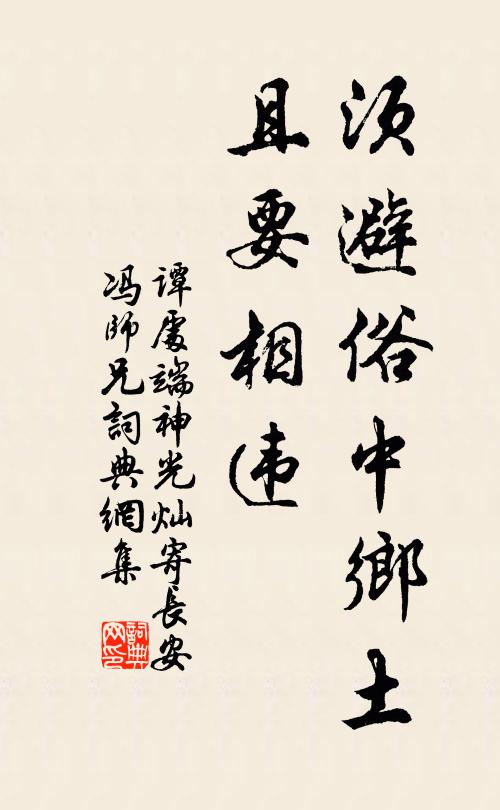 须避俗中鄉土
且要相违
谭處端神光灿寄長安
冯師兄詞典網集
詞典
网印